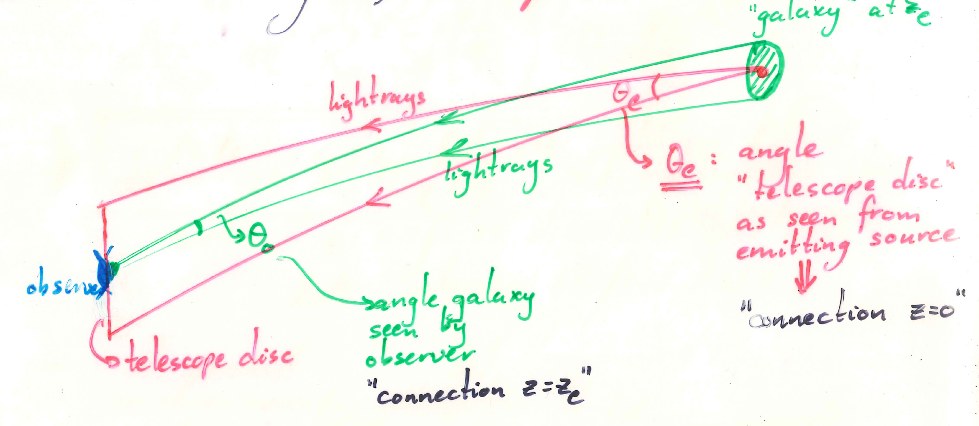 "galaxy" at z_e
lightrays
θ_e
lightrays
θ_e : angle
"telescope disc"
as seen from
emitting source
⇓
"connection z=0"
θ_o
observer
angle galaxy
seen by
observer
"connection z=z_e"
telescope disc